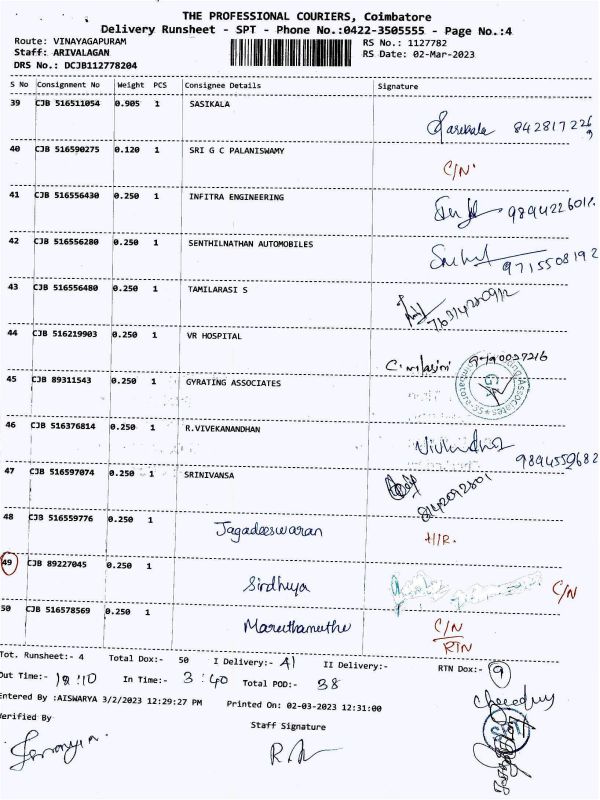 THE PROFESSIONAL COURIERS, Coimbatore
Delivery Runsheet - SPT - Phone No.:0422-3505555 - Page No.:4
Route: VINAYAGAPURAM
RS No.: 1127782
Staff: ARIVALAGAN
RS Date: 02-Mar-2023
DRS No.: DCJB112778204
S No Consignment No Weight PCS Consignee Details Signature
39 CJB 516511054 0.905 1 SASIKALA
Sasikala
40 CJB 516590275 0.120 1 SRI G C PALANISWAMY
C/N
41 CJB 516556430 0.250 1 INFITRA ENGINEERING
42 CJB 516556280 0.250 1 SENTHILNATHAN AUTOMOBILES
9715508192
43 CJB 516556480 0.250 1 TAMILARASI S
44 CJB 516219903 0.250 1 VR HOSPITAL
9790027216
45 CJB 89311543 0.250 1 GYRATING ASSOCIATES
46 CJB 516376814 0.250 1 R.VIVEKANANDHAN
9894559682
47 CJB 516597074 0.250 1 SRINIVANSA
8142092801
48 CJB 516559776 0.250 1 Jagadeeswaran
49 CJB 89227045 0.250 1 Sindhuya C/N
50 CJB 516578569 0.250 1 Maruthamuthu C/N
RTN
Tot. Runsheet:- 4 Total Dox:- 50 I Delivery:- 41 II Delivery:- RTN Dox:- 9
Out Time:- 12:10 In Time:- 3:40 Total POD:- 38
Entered By :AISWARYA 3/2/2023 12:29:27 PM Printed On: 02-03-2023 12:31:00
Verified By
Staff Signature